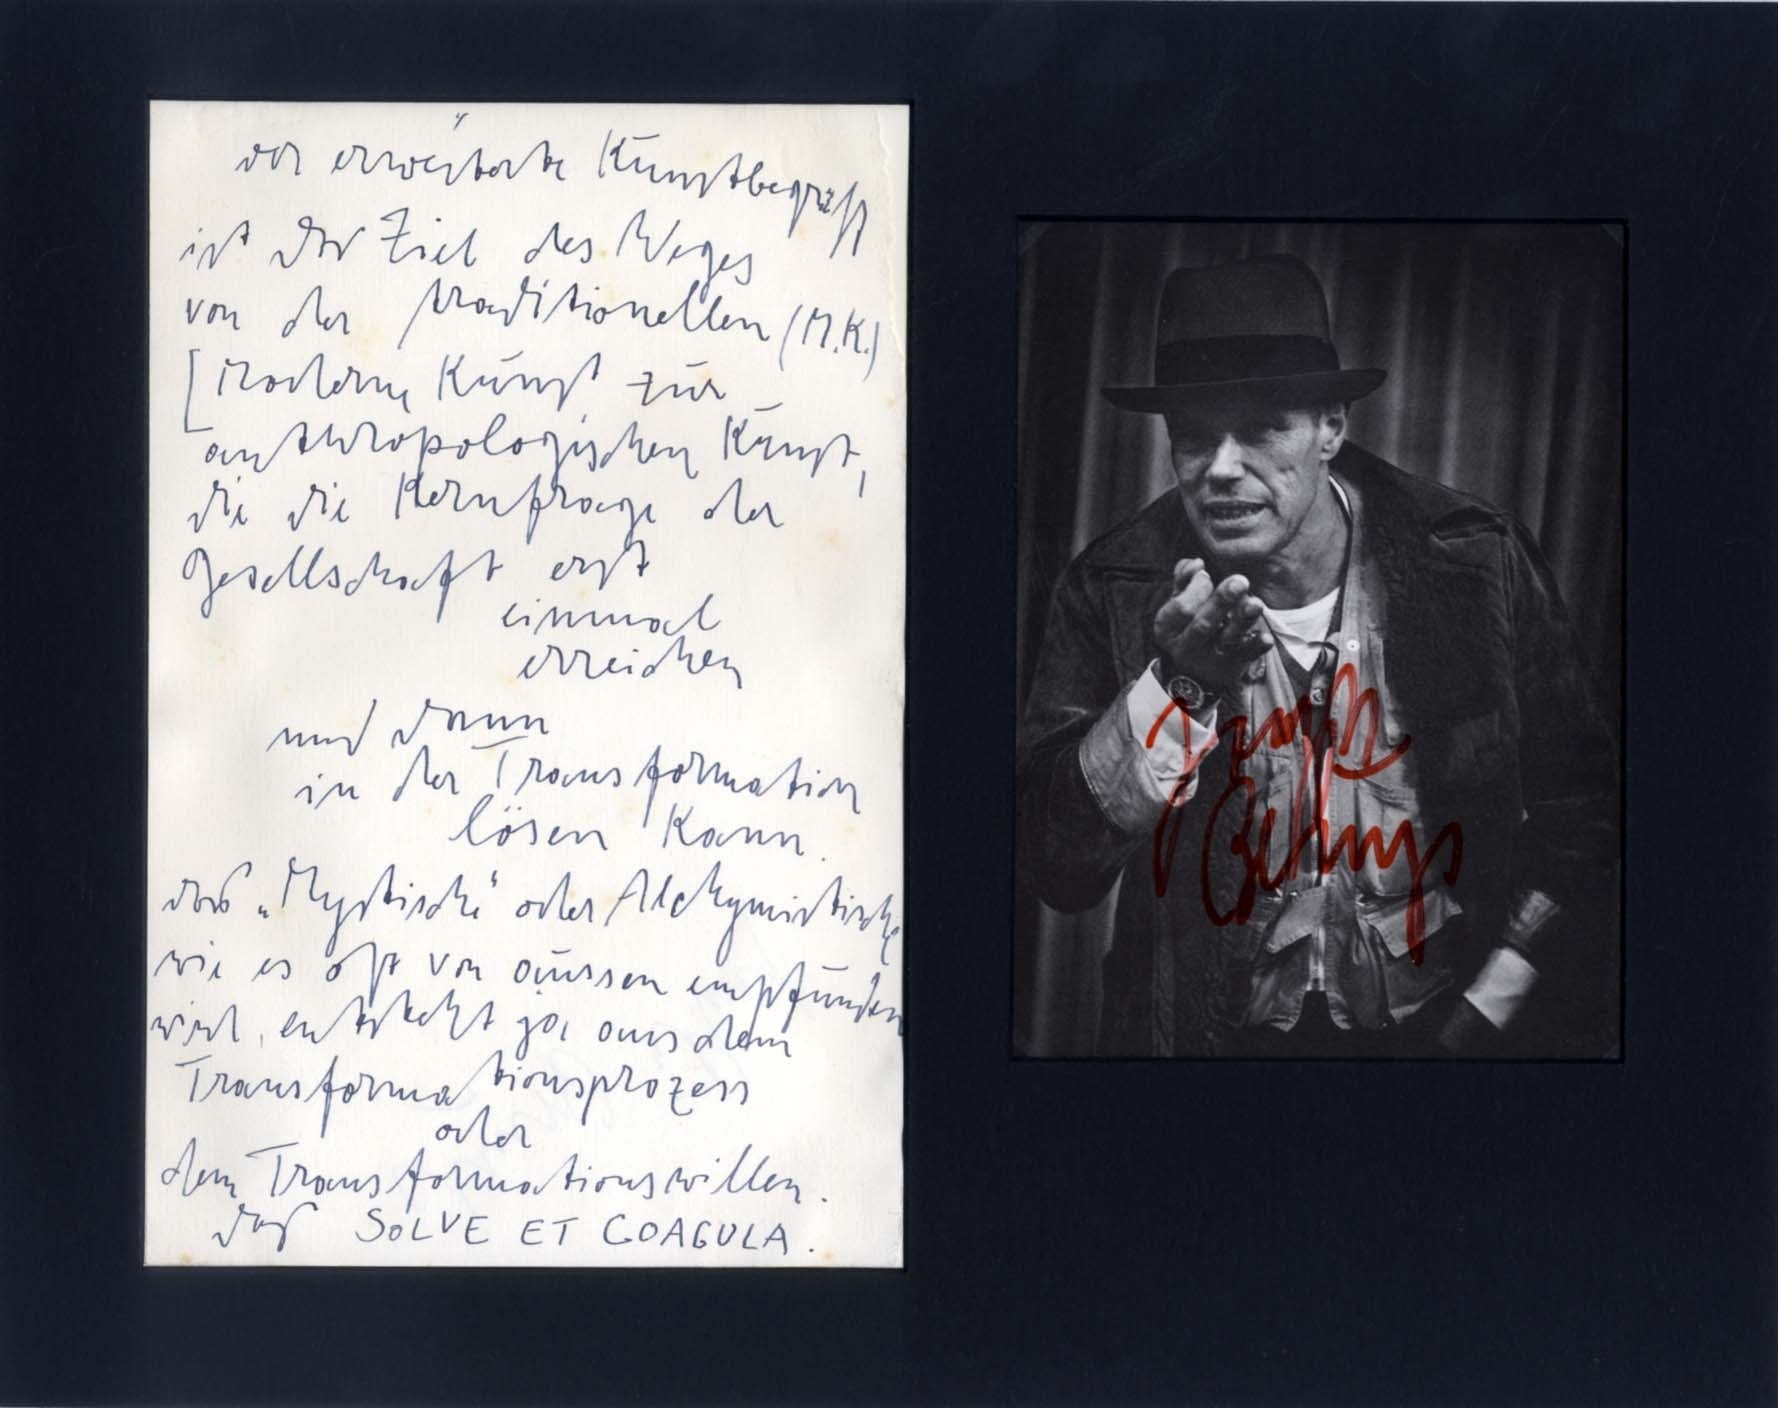 der "erweiterte Kunstbegriff
ist das Ziel des Weges
von der traditionellen (M.K.)
[moderne, Kunst zur
anthropologischen Kunst,
die die Kernfrage der
Gesellschaft erst
einmal
erreichen
und dann
in der Transformation
lösen kann.
das „Mystische“ oder Alchymistische
wie es oft von aussen empfunden
wird, entsteht ja aus dem
Transformationsprozess
oder
dem Transformationswillen.
das SOLVE ET COAGULA.
Joseph
Beuys